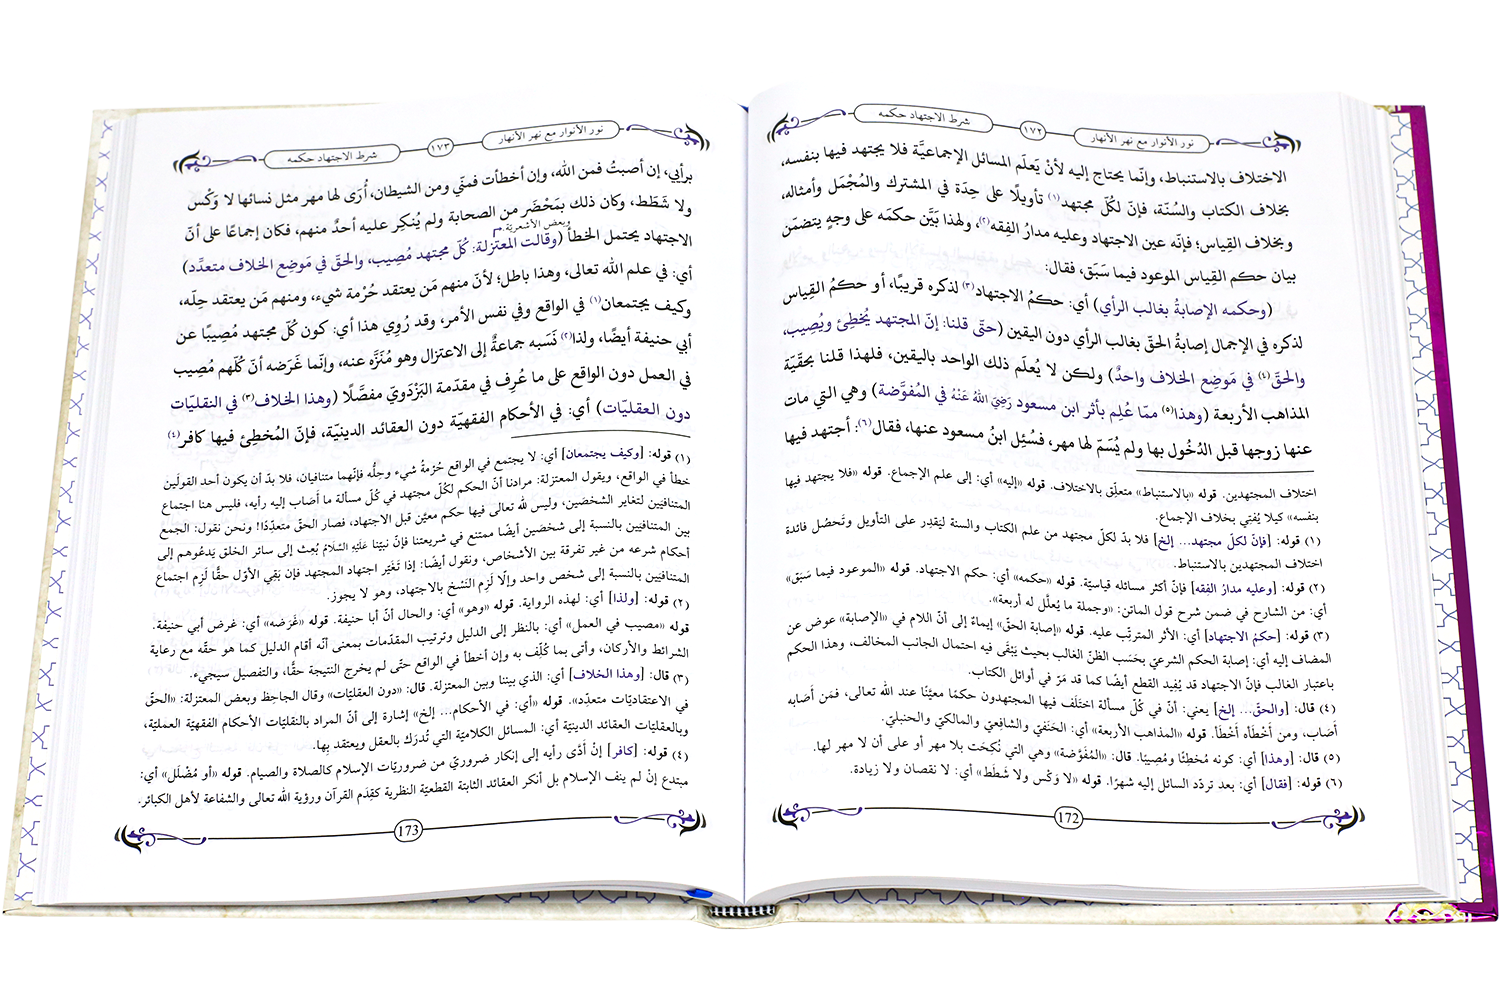 نور الأنوار مع نهر الأنهار
١٧٢
شرط الاجتهاد حكمه
الاختلاف بالاستنباط، وإنّما يحتاج إليه لأنْ يَعلَم المسائل الإجماعيَّة فلا يجتهد فيها بنفسه،
بخلاف الكتاب والسُنّة، فإنّ لكُلّ مجتهد(١) تأويلًا على حِدَة في المشترك والمُجْمَل وأمثاله،
وبخلاف القِياس؛ فإنّه عين الاجتهاد وعليه مدارُ الفِقه(٢)، ولهذا بَيَّن حكمَه على وجهٍ يتضمّن
بيان حكم القِياس الموعود فيما سَبَق، فقال:
(وحكمه الإصابةُ بغالب الرأي) أي: حكمُ الاجتهاد(٣) لذكره قريبًا، أو حكمُ القِياس
لذكره في الإجمال إصابةُ الحقّ بغالب الرأي دون اليقين (حتّى قلنا: إنّ المجتهد يُخْطِئ ويُصِيب،
والحقّ(٤) في مَوضِع الخلاف واحدٌ) ولكن لا يُعلَم ذلك الواحد باليقين، فلهذا قلنا بحقّيّة
المذاهب الأربعة (وهذا(٥) ممّا عُلِم بأثر ابن مسعود رَضِيَ اللهُ عَنْهُ في المُفوَّضة) وهي التي مات
عنها زوجها قبل الدُخُول بها ولم يُسَمّ لها مهر، فسُئِل ابنُ مسعود عنها، فقال(٦): أجتهد فيها
اختلاف المجتهدين. قوله «بالاستنباط» متعلِّق بالاختلاف. قوله «إليه» أي: إلى علم الإجماع. قوله «فلا يجتهد فيها
بنفسه» كيلا يُفتِي بخلاف الإجماع.
(١) قوله: [فإنّ لكلّ مجتهد... إلخ] فلا بدّ لكلّ مجتهد من علم الكتاب والسنة ليَقدِر على التأويل وتَحصُل فائدة
اختلاف المجتهدين بالاستنباط.
(٢) قوله: [وعليه مدارُ الفِقه] فإنّ أكثر مسائله قياسيّة. قوله «حكمه» أي: حكم الاجتهاد. قوله «الموعود فيما سَبَق»
أي: من الشارح في ضمن شرح قول الماتن: «وجملة ما يُعلَّل له أربعة».
(٣) قوله: [حكمُ الاجتهاد] أي: الأثر المترتِّب عليه. قوله «إصابة الحقّ» إيماءٌ إلى أنّ اللام في «الإصابة» عوض عن
المضاف إليه أي: إصابة الحكم الشرعيّ بحَسَب الظنّ الغالب بحيث يَبْقَى فيه احتمال الجانب المخالف، وهذا الحكم
باعتبار الغالب فإنّ الاجتهاد قد يُفِيد القطع أيضًا كما قد مَرّ في أوائل الكتاب.
(٤) قال: [والحقّ... إلخ] يعني: أنّ في كُلّ مسألة اختَلَف فيها المجتهدون حكمًا معيَّنًا عند الله تعالى، فمَن أَصَابه
أَصَاب، ومن أَخْطَأه أَخْطَأ. قوله «المذاهب الأربعة» أي: الحَنَفيّ والشافِعيّ والمالكيّ والحنبليّ.
(٥) قال: [وهذا] أي: كونه مُخطِئًا ومُصِيبًا. قال: «المُفَوَّضة» وهي التي نُكِحَت بلا مهر أو على أن لا مهر لها.
(٦) قوله: [فقال] أي: بعد تردّد السائل إليه شهرًا. قوله «لا وَكْس ولا شَطَط» أي: لا نقصان ولا زيادة.
172
نور الأنوار مع نهر الأنهار
١٧٣
شرط الاجتهاد حكمه
برأيي، إن أصبتُ فمن الله، وإن أخطأت فمنّي ومن الشيطان، أُرَى لها مهر مثل نسائها لا وَكْس
ولا شَطَط، وكان ذلك بمَحْضَر من الصحابة ولم يُنكِر عليه أحدٌ منهم، فكان إجماعًا على أنّ
وبعض الأشعريّة.
الاجتهاد يحتمل الخطأَ (وقالت المعتزلة: كُلّ مجتهد مُصِيب، والحقّ في مَوضِع الخلاف متعدّد)
أي: في علم الله تعالى، وهذا باطل؛ لأنّ منهم مَن يعتقد حُرْمة شيء، ومنهم مَن يعتقد حِلّه،
وكيف يجتمعان(١) في الواقع وفي نفس الأمر، وقد رُوِي هذا أي: كون كُلّ مجتهد مُصِيبًا عن
أبي حنيفة أيضًا، ولذا(٢) نَسَبه جماعةٌ إلى الاعتزال وهو مُنَزَّه عنه، وإنّما غَرَضه أنّ كُلّهم مُصِيب
في العمل دون الواقع على ما عُرِف في مقدّمة البَزْدَويّ مفصَّلًا (وهذا الخلاف(٣) في النقليّات
دون العقليّات) أي: في الأحكام الفقهيّة دون العقائد الدينيّة، فإنّ المُخطِئ فيها كافر(٤)
(١) قوله: [وكيف يجتمعان] أي: لا يجتمع في الواقع حُرْمةُ شيء وحِلُّه فإنّهما متنافيان، فلا بدّ أن يكون أحد القولَين
خطأ في الواقع، ويقول المعتزلة: مرادنا أنّ الحكم لكُلّ مجتهد في كُلّ مسألة ما أَصَاب إليه رأيه، فليس هنا اجتماع
المتنافيَين لتغاير الشخصَين، وليس لله تعالى فيها حكم معيَّن قبل الاجتهاد، فصار الحقّ متعدّدًا! ونحن نقول: الجمع
بين المتنافيَين بالنسبة إلى شخصَين أيضًا ممتنع في شريعتنا فإنّ نبيّنا عَلَيْهِ السَّلَامُ بُعِث إلى سائر الخلق يَدعُوهم إلى
أحكام شرعه من غير تفرقة بين الأشخاص، ونقول أيضًا: إذا تَغَيّر اجتهاد المجتهد فإن بَقِي الأوّل حقًّا لَزِم اجتماع
المتنافيَين بالنسبة إلى شخص واحد وإلّا لَزِم النَسْخ بالاجتهاد، وهو لا يجوز.
(٢) قوله: [ولذا] أي: لهذه الرواية. قوله «وهو» أي: والحال أنّ أبا حنيفة. قوله «غَرَضه» أي: غرض أبي حنيفة.
قوله «مصيب في العمل» أي: بالنظر إلى الدليل وترتيب المقدّمات بمعنى أنّه أقام الدليل كما هو حقّه مع رعاية
الشرائط والأركان، وأتى بما كُلِّف به وإن أخطأ في الواقع حتّى لم يخرج النتيجة حقًّا، والتفصيل سيجيء.
(٣) قال: [وهذا الخلاف] أي: الذي بيننا وبين المعتزلة. قال: «دون العقليّات» وقال الجاحِظ وبعض المعتزلة: «الحقّ
في الاعتقاديّات متعدِّد». قوله «أي: في الأحكام... إلخ» إشارة إلى أنّ المراد بالنقليّات الأحكام الفقهيّة العمليّة،
وبالعقليّات العقائد الدينيّة أي: المسائل الكلاميّة التي تُدرَك بالعقل ويعتقد بها.
(٤) قوله: [كافر] إنْ أدّى رأيه إلى إنكار ضروريّ من ضروريّات الإسلام كالصلاة والصيام. قوله «أو مُضلَّل» أي:
مبتدع إنْ لم ينف الإسلام بل أنكر العقائد الثابتة القطعيّة النظرية كقِدَم القرآن ورؤية الله تعالى والشفاعة لأهل الكبائر.
173